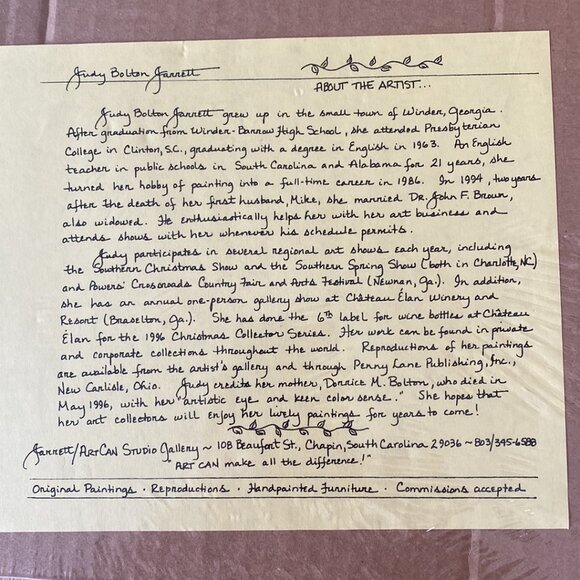 Judy Bolton Jarrett
ABOUT THE ARTIST...
Judy Bolton Jarrett grew up in the small town of Winder, Georgia.
After graduation from Winder-Barrow High School, she attended Presbyterian
College in Clinton, S.C., graduating with a degree in English in 1963. An English
teacher in public schools in South Carolina and Alabama for 21 years, she
turned her hobby of painting into a full-time career in 1986. In 1994, two years
after the death of her first husband, Mike, she married Dr. John F. Brown,
also widowed. He enthusiastically helps her with her art business and
attends shows with her whenever his schedule permits.
Judy participates in several regional art shows each year, including
the Southern Christmas Show and the Southern Spring Show (both in Charlotte, NC)
and Powers' Crossroads Country Fair and Arts Festival (Newnan, Ga.). In addition,
she has an annual one-person gallery show at Château Élan Winery and
Resort (Braselton, Ga.). She has done the 6th label for wine bottles at Château
Elan for the 1996 Christmas Collector Series. Her work can be found in private
and corporate collections throughout the world. Reproductions of her paintings
are available from the artist's gallery and through Penny Lane Publishing, Inc.,
New Carlisle, Ohio. Judy credits her mother, Dorrice M. Bolton, who died in
May 1996, with her "artistic eye and keen color sense." She hopes that
her art collectors will enjoy her lively paintings for years to come!
Jarrett/ArtCan Studio Gallery ~ 108 Beaufort St., Chapin, South Carolina 29036 ~ 803/345-6588
ART CAN make all the difference!"
Original Paintings · Reproductions · Handpainted Furniture · Commissions accepted